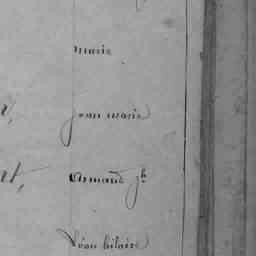 marie
jean marie
armand jh
Léon hilaire